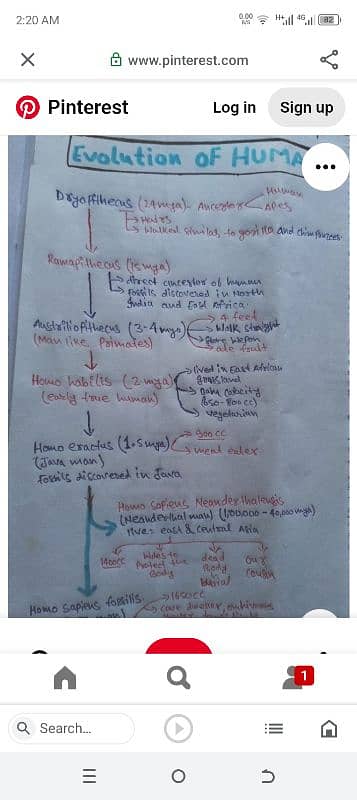 2:20 AM
0.00 K/S
H+ 4G 82
www.pinterest.com
Pinterest
Log in
Sign up
Evolution OF HUMA
Dryopithecus (24mya)- Ancestor
Human
APES
Hairs
Walked similar, to gorilla and chimpanzees.
Ramapithecus (15 mya)
direct ancestor of human
fossils discovered in North
India and East Africa.
(3-4mya)
4 feet
Walk straight
Stone weapon
ate fruit
(Man like Primates)
Homo habilis (2 mya)
(early true human)
lived in East African
grassland
(650-800cc)
vegetarian
Homo eractus (1.5mya)
(Java man)
fossils discovered in Java
900cc
meat eater
Homo sapiens Neanderthalensis
(Neanderthal man) (1,00000 - 40,000 mya)
live- east & central Asia
1400cc
Hides to
Protect the
Body
dead
Body
burial
our
Homo sapiens fossilis.
1650cc
1
Search...